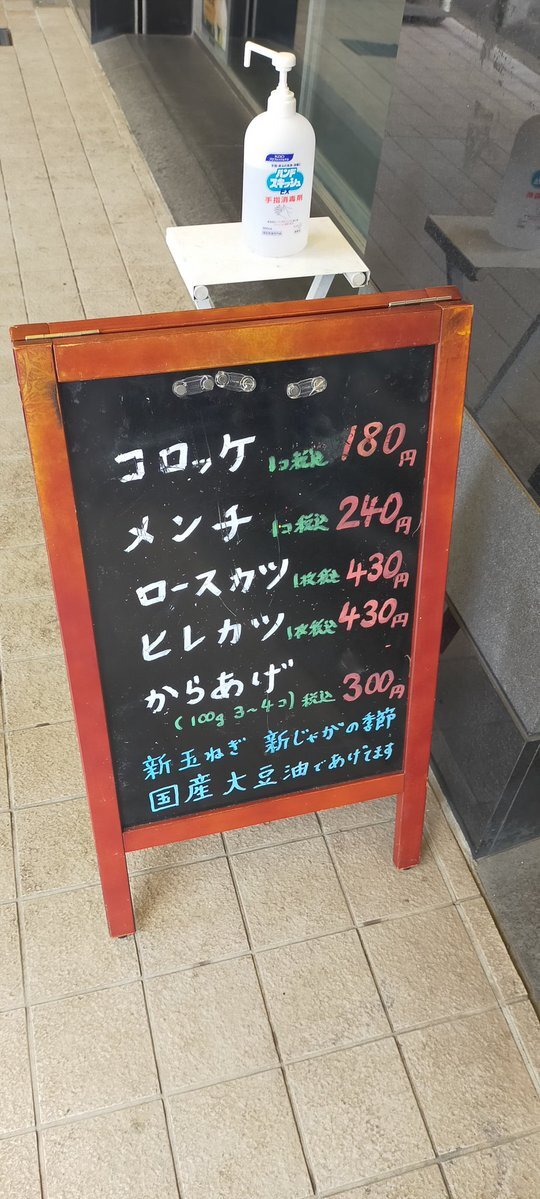 ハンド
スキッシュ
EX
手指消毒剤
コロッケ 1コ税込 180円
メンチ 1コ税込 240円
ロースカツ 1枚税込 430円
ヒレカツ 1枚税込 430円
からあげ
(100g 3~4コ) 税込 300円
新玉ねぎ 新じゃがの季節
国産大豆油であげてます